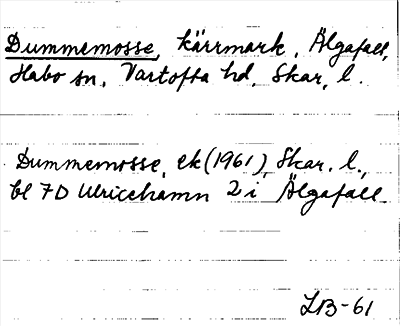 Dummemosse, kärrmark, Älgafall,
Habo sn, Vartofta hd, Skar. l.
Dummemosse, ek (1961) Skar. l.,
bl 7D Ulricehamn 2 i Älgafall
LB-61